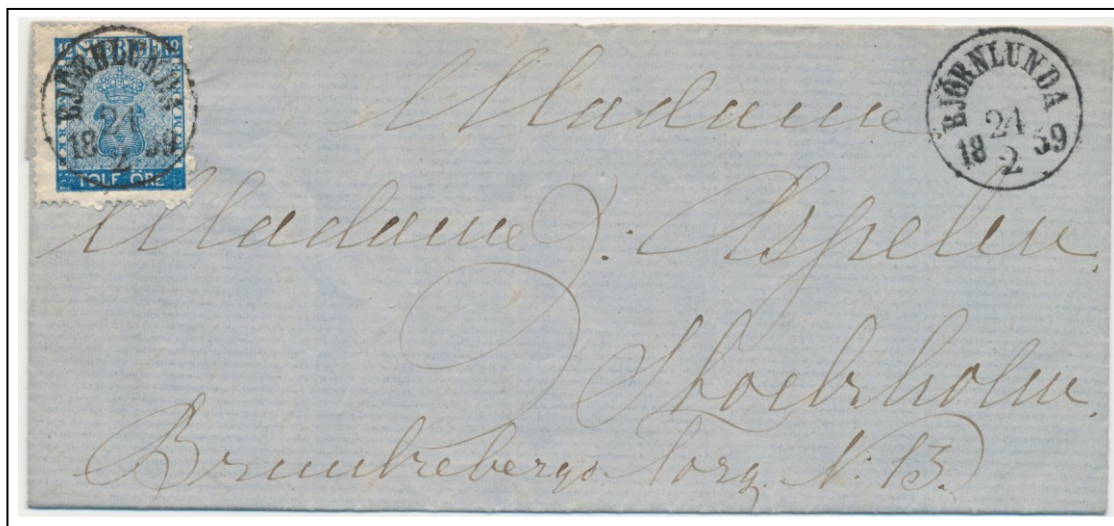 SVERIGE
BJÖRNLUNDA
24
18 59
2
TOLF ÖRE
BJÖRNLUNDA
24
18 59
2
Madame
Madame J. Aspelin.
Stockholm.
Brunkebergs Torg N: 13.